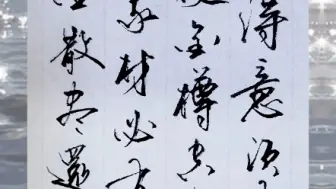 得意須
使金樽空
我材必有
金散盡還